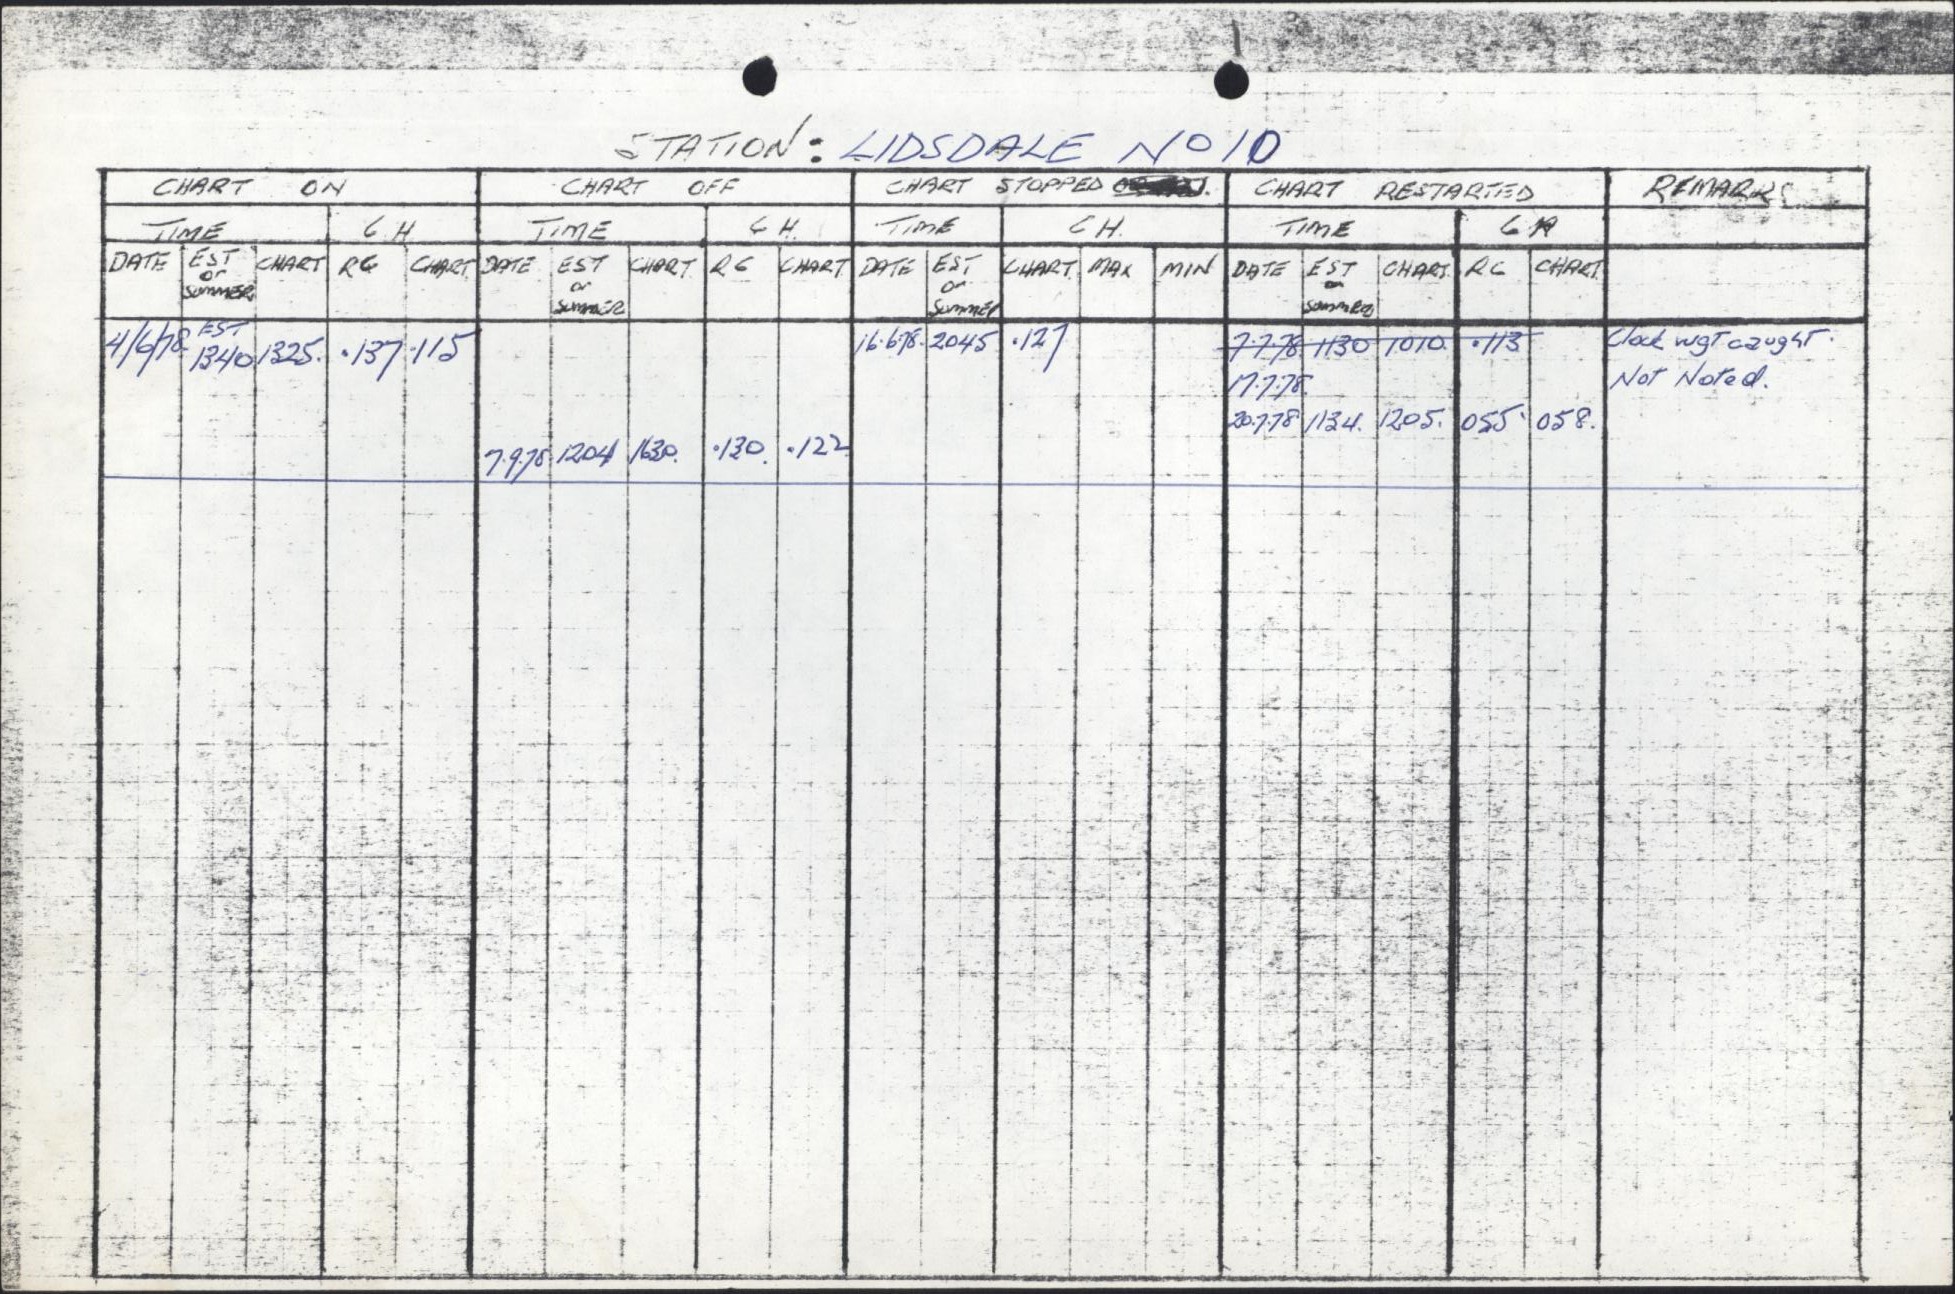 STATION: LIDSDALE No 10
CHART ON CHART OFF CHART STOPPED CHART RESTARTED REMARKS
TIME G.H TIME G.H. TIME G.H. TIME G.H
DATE EST or SUMMER CHART RG CHART DATE EST or SUMMER CHART RG CHART DATE EST or SUMMER CHART MAX MIN DATE EST or SUMMER CHART RG CHART
4/6/78 EST 1340 1325. .137 .115 16.6.78. 2045 .127 7.7.78. 1130 1010. .113 Clock wgt caught.
17.7.78. Not Noted.
20.7.78 1134. 1205. 055 058.
7.9.78 1204 1630. .130. .122